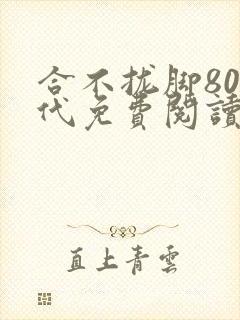 合不拢脚80
代免費閱讀
直上青雲